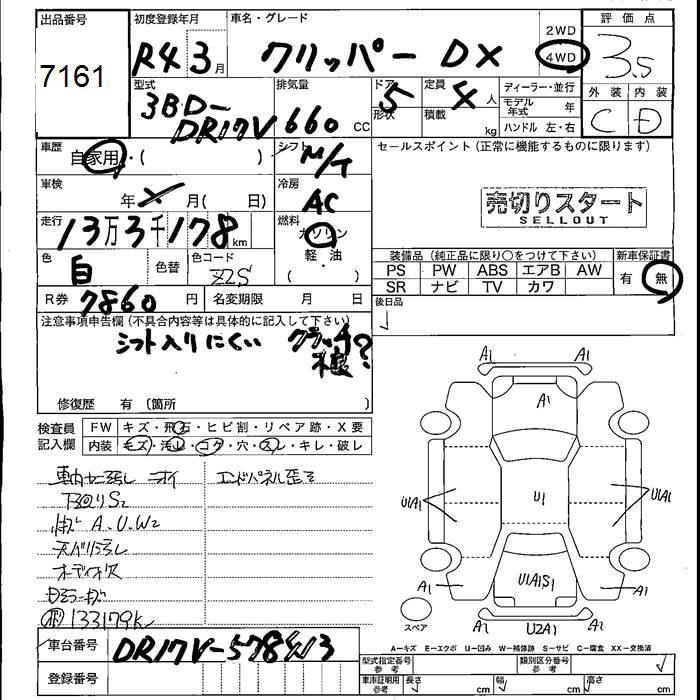 出品番号
7161
初度登録年月
R4 3月
車名・グレード
クリッパー DX
2WD
4WD
評価点
3.5
外装 内装
C D
型式
3BD-
DR17V
排気量
660 cc
ドア 5
形状
定員 4人
積載 kg
ディーラー・並行
モデル年式 年
ハンドル 左・右
車歴
自家用・( )
シフト
M/T
セールスポイント(正常に機能するものに限ります)
車検
年 月( 日)
冷房
AC
売切りスタート
SELLOUT
走行
13万3千178km
燃料
ガソリン
軽油
( )
色
白
色替
色コード
Z2S
装備品(純正品に限り○をつけて下さい)
PS PW ABS エアB AW
SR ナビ TV カワ
新車保証書
有・無
R券 7860円
名変期限 月 日
後日品
注意事項申告欄(不具合内容等は具体的に記入して下さい)
シフト入りにくい クラッチ
?
修復歴 有(箇所 )
検査員
記入欄
FW キズ・飛石・ヒビ割・リペア跡・X要
内装 キズ・汚れ・コゲ・穴・スレ・キレ・破レ
エンドパネル歪ミ
下回りS2
A.U.W2
133179k
A1 A1
A1
U1A1 U1 U1A1
U1A1S1
A1 A1
U2A1
スペア
A=キズ E=エクボ U=凹み W=補修跡 S=サビ C=腐食 XX=交換済
車台番号 DR17V-578413
登録番号
型式指定番号
参考
類別区分番号
参考
車庫証明用
参考
長さ cm 幅 cm 高さ cm